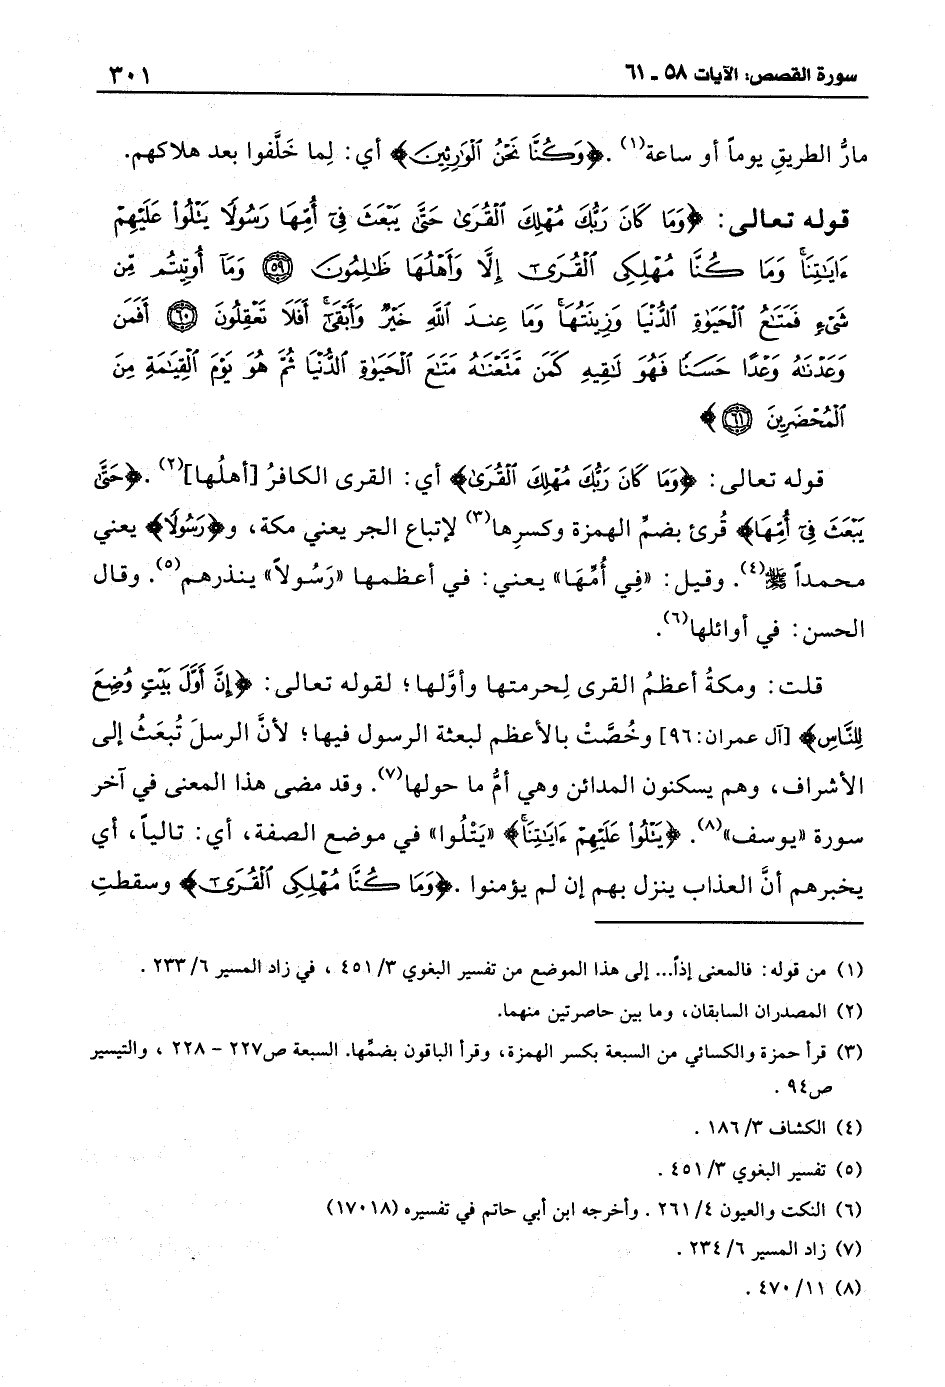 سورة القصص: الآيات ٥٨ ـ ٦١
٣٠١
مارُّ الطريقِ يوماً أو ساعة(١). ﴿وَكُنَّا نَحْنُ ٱلْوَٰرِثِينَ﴾ أي: لِما خَلَّفوا بعد هلاكهم.
قوله تعالى: ﴿وَمَا كَانَ رَبُّكَ مُهْلِكَ ٱلْقُرَىٰ حَتَّىٰ يَبْعَثَ فِىٓ أُمِّهَا رَسُولًا يَتْلُوا۟ عَلَيْهِمْ
ءَايَٰتِنَا ۚ وَمَا كُنَّا مُهْلِكِى ٱلْقُرَىٰٓ إِلَّا وَأَهْلُهَا ظَٰلِمُونَ ٥٩ وَمَآ أُوتِيتُم مِّن
شَىْءٍ فَمَتَٰعُ ٱلْحَيَوٰةِ ٱلدُّنْيَا وَزِينَتُهَا ۚ وَمَا عِندَ ٱللَّهِ خَيْرٌ وَأَبْقَىٰٓ ۚ أَفَلَا تَعْقِلُونَ ٦٠ أَفَمَن
وَعَدْنَٰهُ وَعْدًا حَسَنًا فَهُوَ لَٰقِيهِ كَمَن مَّتَّعْنَٰهُ مَتَٰعَ ٱلْحَيَوٰةِ ٱلدُّنْيَا ثُمَّ هُوَ يَوْمَ ٱلْقِيَٰمَةِ مِنَ
ٱلْمُحْضَرِينَ ٦١﴾
قوله تعالى: ﴿وَمَا كَانَ رَبُّكَ مُهْلِكَ ٱلْقُرَىٰ﴾ أي: القرى الكافرُ [أهلُها](٢). ﴿حَتَّىٰ
يَبْعَثَ فِىٓ أُمِّهَا﴾ قُرئ بضمِّ الهمزة وكسرِها(٣) لإتباع الجر يعني مكة، و﴿رَسُولًا﴾ يعني
محمداً ﷺ(٤). وقيل: «فِي أُمِّهَا» يعني: في أعظمها «رَسُولاً» ينذرهم(٥). وقال
الحسن: في أوائلها(٦).
قلت: ومكةُ أعظمُ القرى لِحرمتها وأوَّلها؛ لقوله تعالى: ﴿إِنَّ أَوَّلَ بَيْتٍ وُضِعَ
لِلنَّاسِ﴾ [آل عمران: ٩٦] وخُصَّتْ بالأعظم لبعثة الرسول فيها؛ لأنَّ الرسلَ تُبعَثُ إلى
الأشراف، وهم يسكنون المدائن وهي أمُّ ما حولها(٧). وقد مضى هذا المعنى في آخر
سورة «يوسف»(٨). ﴿يَتْلُوا۟ عَلَيْهِمْ ءَايَٰتِنَا ۚ﴾ «يَتْلُوا» في موضع الصفة، أي: تالياً، أي
يخبرهم أنَّ العذاب ينزل بهم إن لم يؤمنوا. ﴿وَمَا كُنَّا مُهْلِكِى ٱلْقُرَىٰٓ﴾ وسقطتِ
(١) من قوله: فالمعنى إذاً... إلى هذا الموضع من تفسير البغوي ٤٥١/٣ ، في زاد المسير ٢٣٣/٦ .
(٢) المصدران السابقان، وما بين حاصرتين منهما.
(٣) قرأ حمزة والكسائي من السبعة بكسر الهمزة، وقرأ الباقون بضمِّها. السبعة ص٢٢٧ - ٢٢٨ ، والتيسير
ص٩٤ .
(٤) الكشاف ١٨٦/٣ .
(٥) تفسير البغوي ٤٥١/٣ .
(٦) النكت والعيون ٢٦١/٤ . وأخرجه ابن أبي حاتم في تفسيره (١٧٠١٨)
(٧) زاد المسير ٢٣٤/٦ .
(٨) ٤٧٠/١١ .